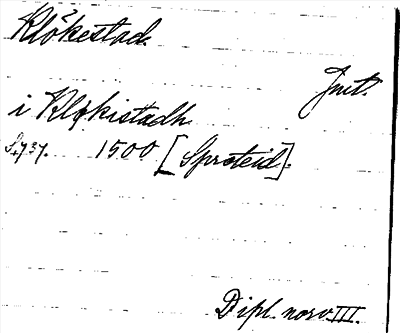 Klökestad.
Jmt.
i Kløkistadh
S. 737. 1500 [Sproteid].
Dipl. norv. III.